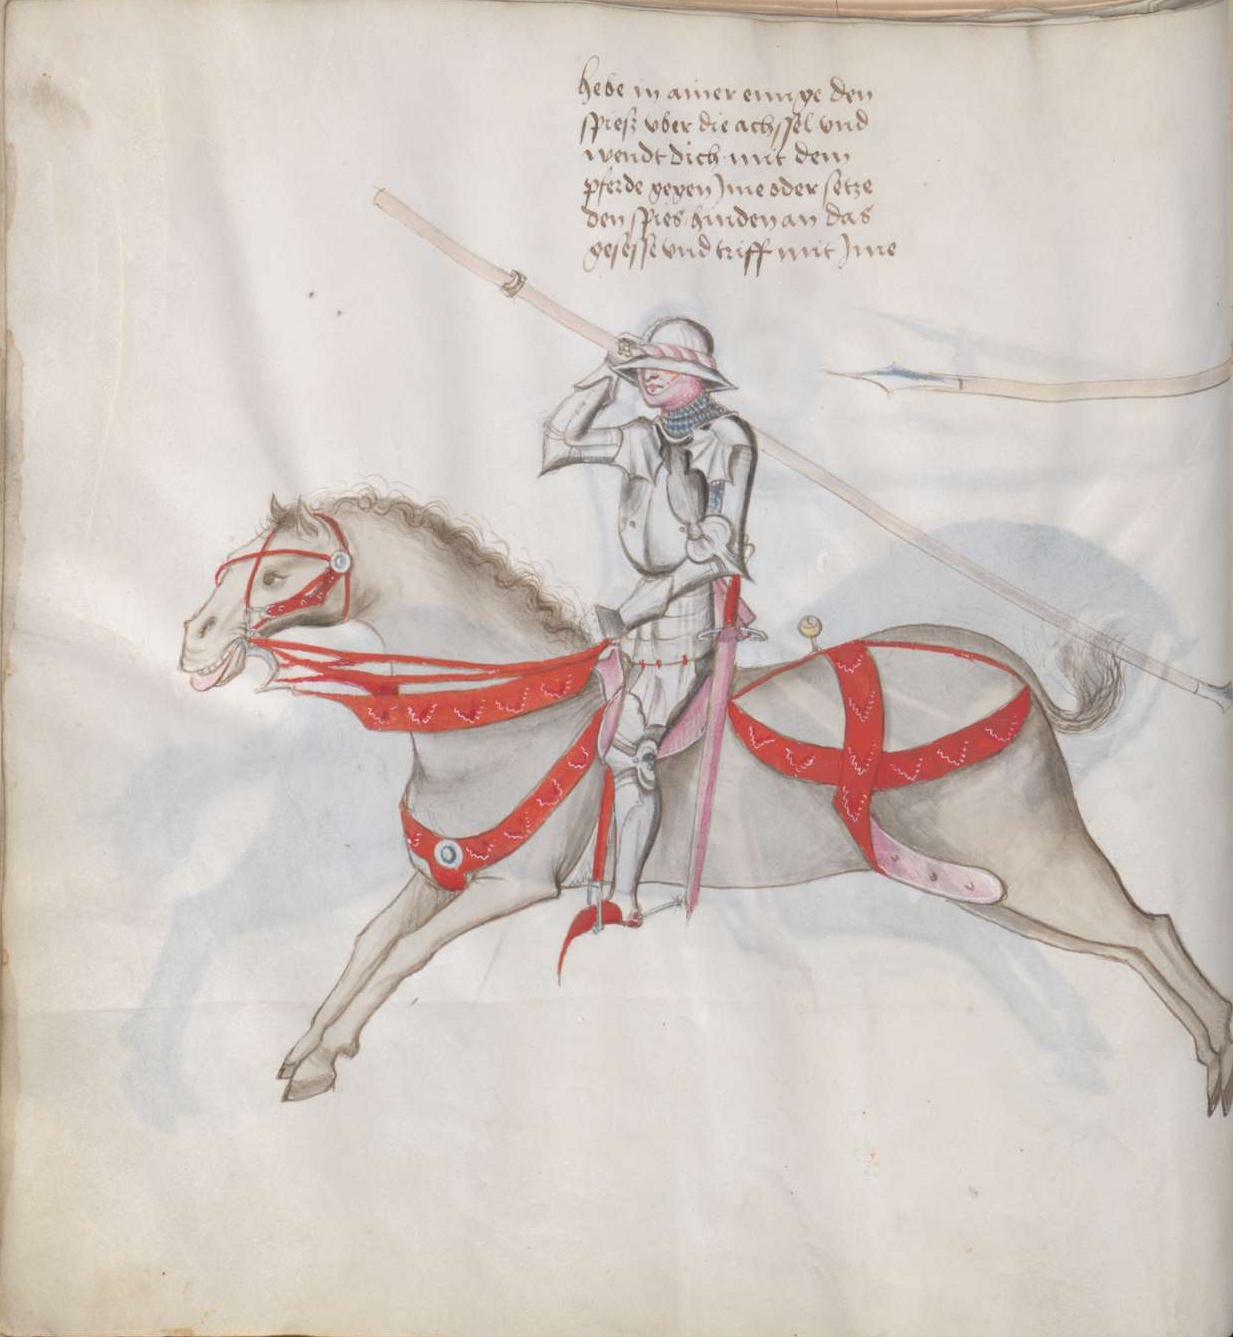 hebe in ainer ennge den
spiesz vber die achssel vnd
wendt dich mit dem
pferde gegen Jme oder setze
den spies hinden an das
gesesse vnd triff mit Jme